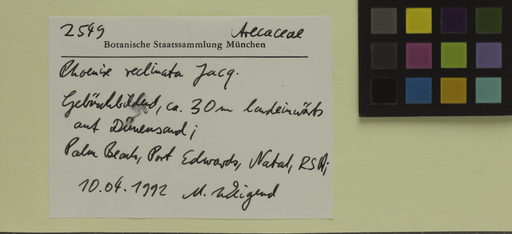 2549 Arecaceae
Botanische Staatssammlung München
Phoenix reclinata Jacq.
Gebüschbildend, ca. 30 m landeinwärts
auf Dünensand;
Palm Beach, Port Edwards, Natal, RSA;
10.04.1992 M. Weigend